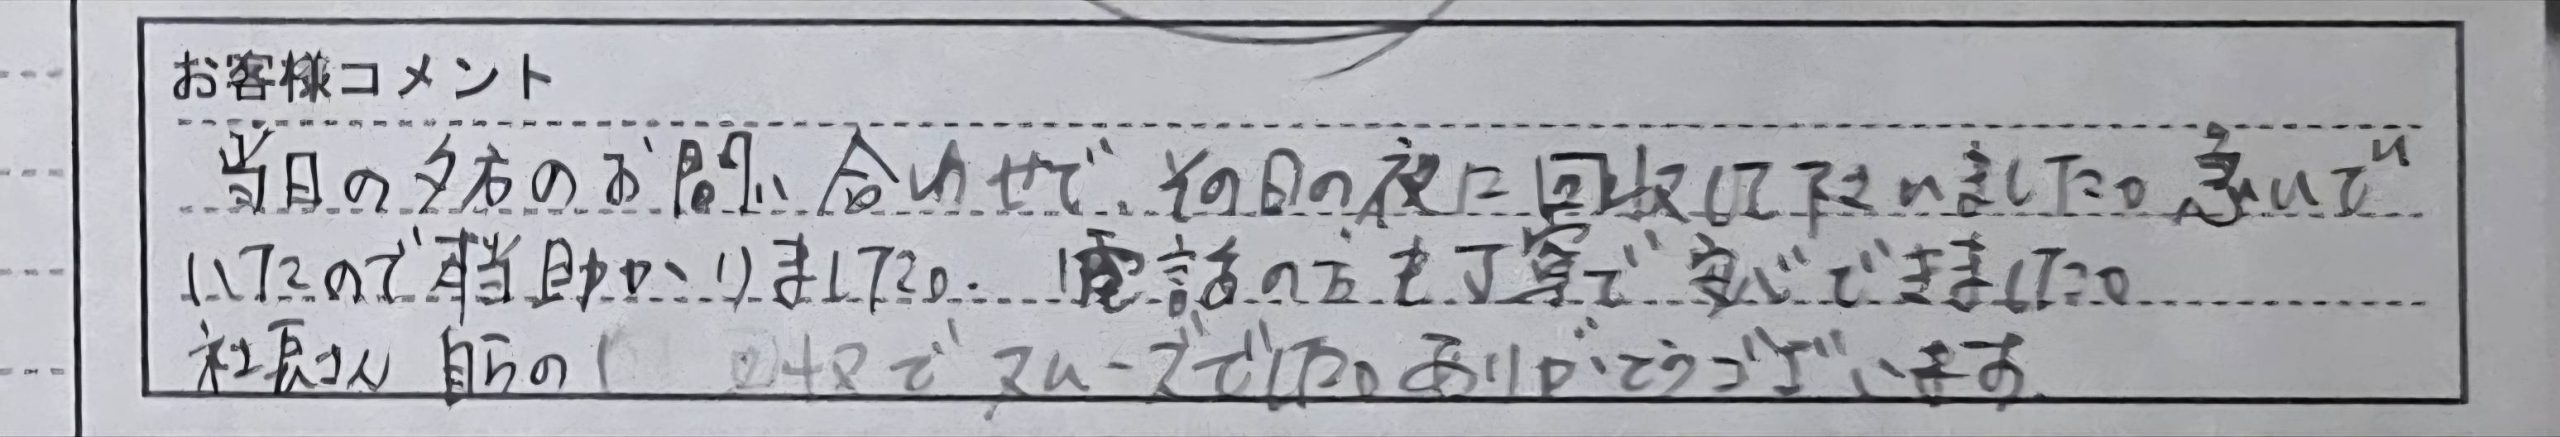 お客様コメント
当日の夕方のお問い合わせで、その日の夜に回収して下さいました。急いで
いたので本当助かりました。電話の方も丁寧で安心できました。
社長さん自らの回収でスムーズでした。ありがとうございます。